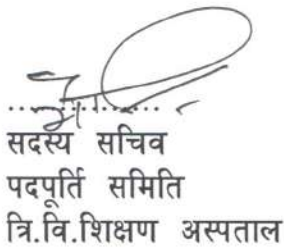 ....................
सदस्य सचिव
पदपूर्ति समिति
त्रि.वि.शिक्षण अस्पताल